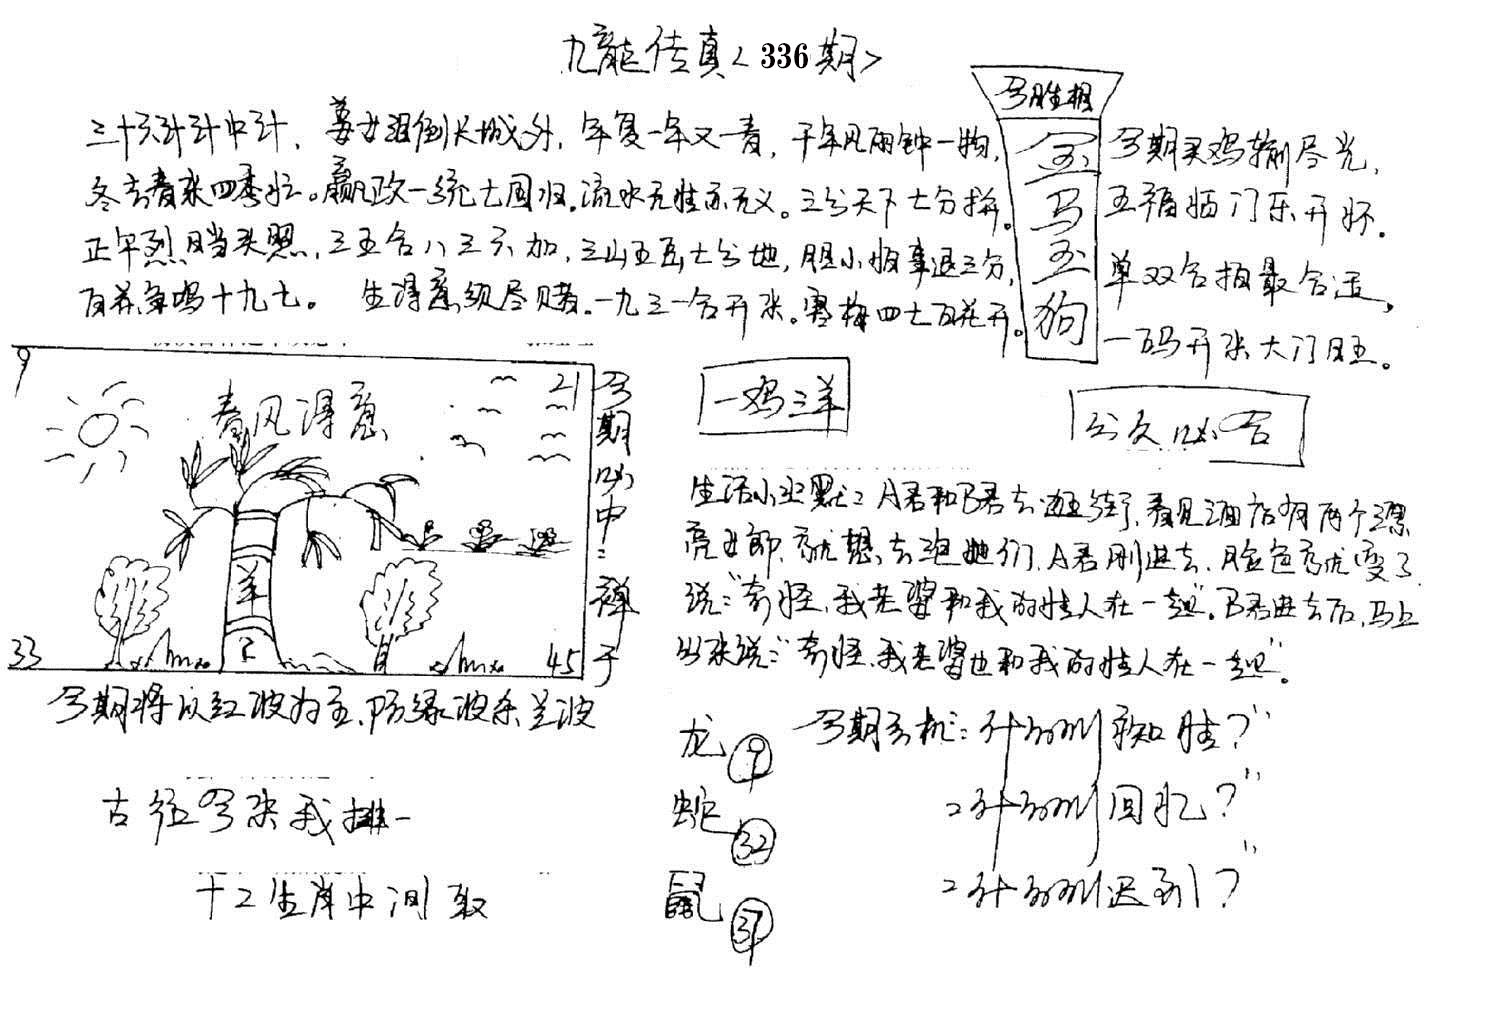 九龍传真<336期>
三十六计计中计，姜女泪倒长城外，年复一年又一春，千年风雨钟一物，
冬去春来四季忙。嬴政一统七国归，流水无情亦无义。三分天下七分拼。
正午烈日当头照，三五合八三六加，三山五岳七分地，胆小怕事退三分，
百花争鸣十九七。 生得意须尽赌。一九三一合开来。寒梅四七百花开。
今期买鸡输尽光，
五福临门乐开怀。
单双合拍最合适，
一码开来大门旺。
今胜相
金
马
玉
狗
9
21
春风得意
羊
33
45
今期必中：禅于
今期将以红波为主，防绿波杀兰波
古径今来我排一
十二生肖中间取
一鸡三羊
公文必合
生活小幽默：A君和B君去逛街，看见酒店有两个漂
亮女郎，就想去泡她们，A君刚进去，脸色就变了
说："奇怪，我老婆和我的情人在一起"。B君进去后，马上
出来说："奇怪，我老婆也和我的情人在一起"。
龙 9
蛇 32
鼠 37
今期玄机：什么叫知情？"
：什么叫回忆？"
：什么叫迟到？"